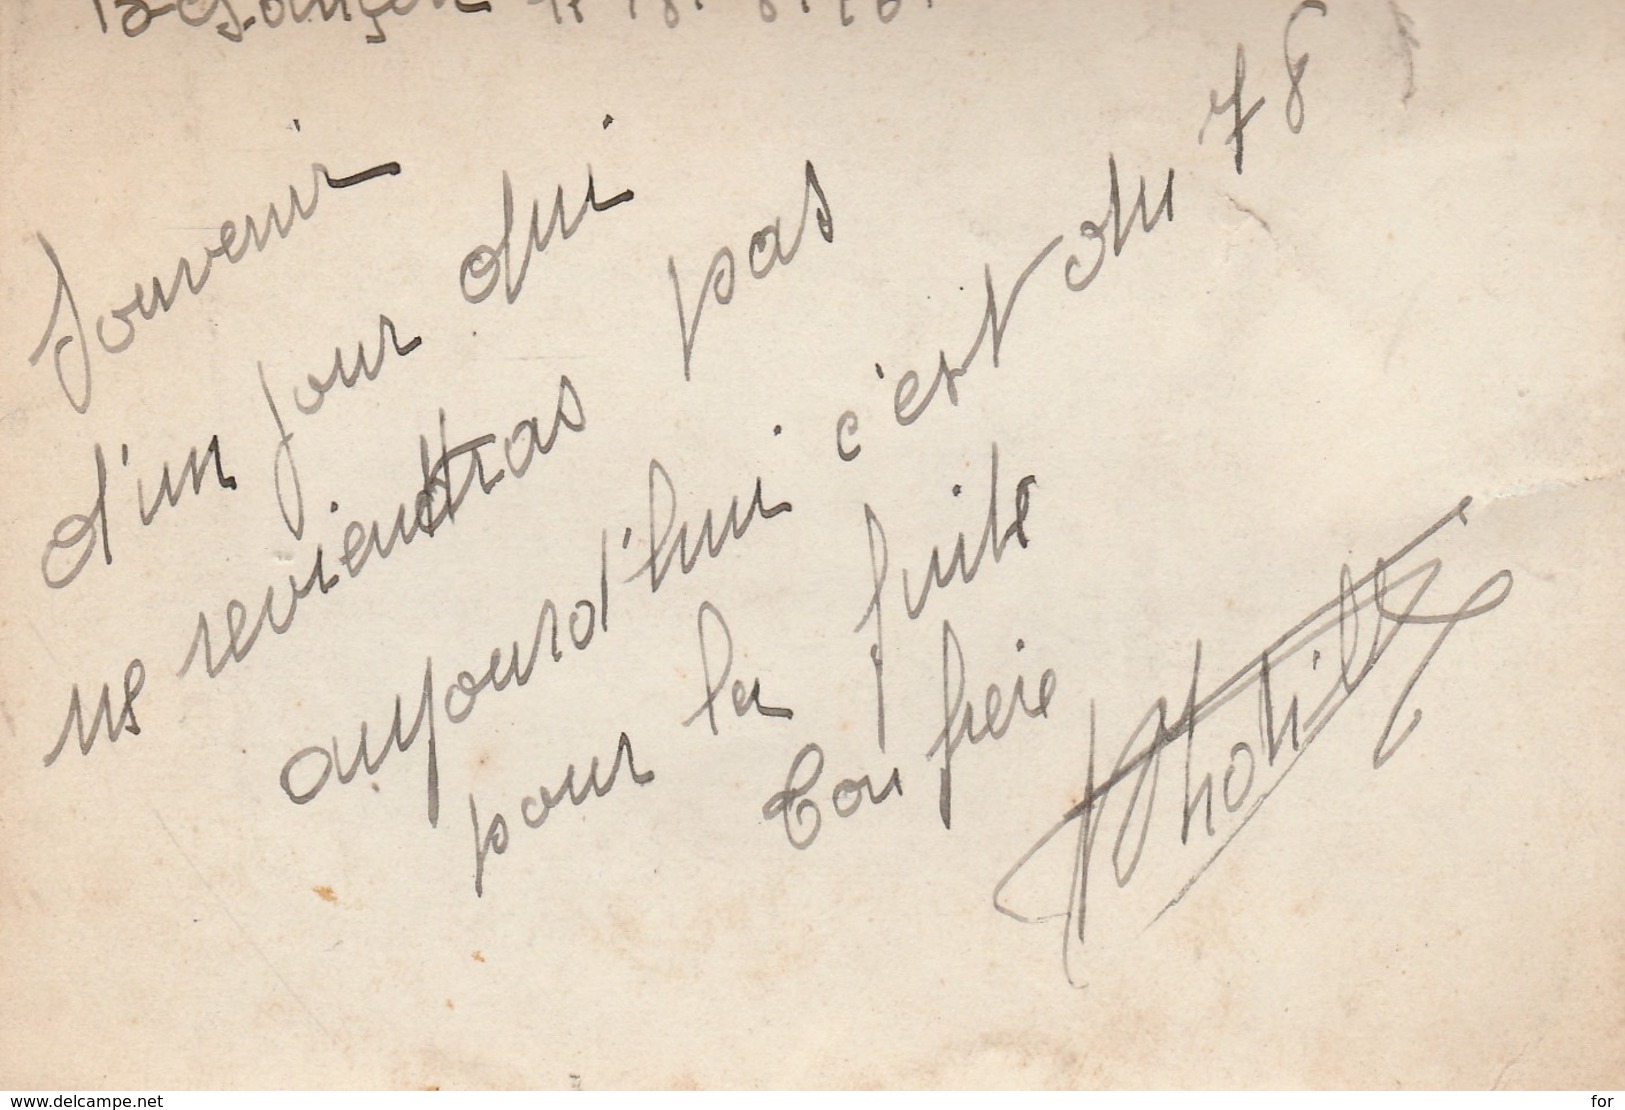 Besançon le 18.
Souvenir
d'un jour qui
ne reviendras pas
aujourd'hui c'est du 78
pour la fuite
Ton frère
www.delcampe.net
for